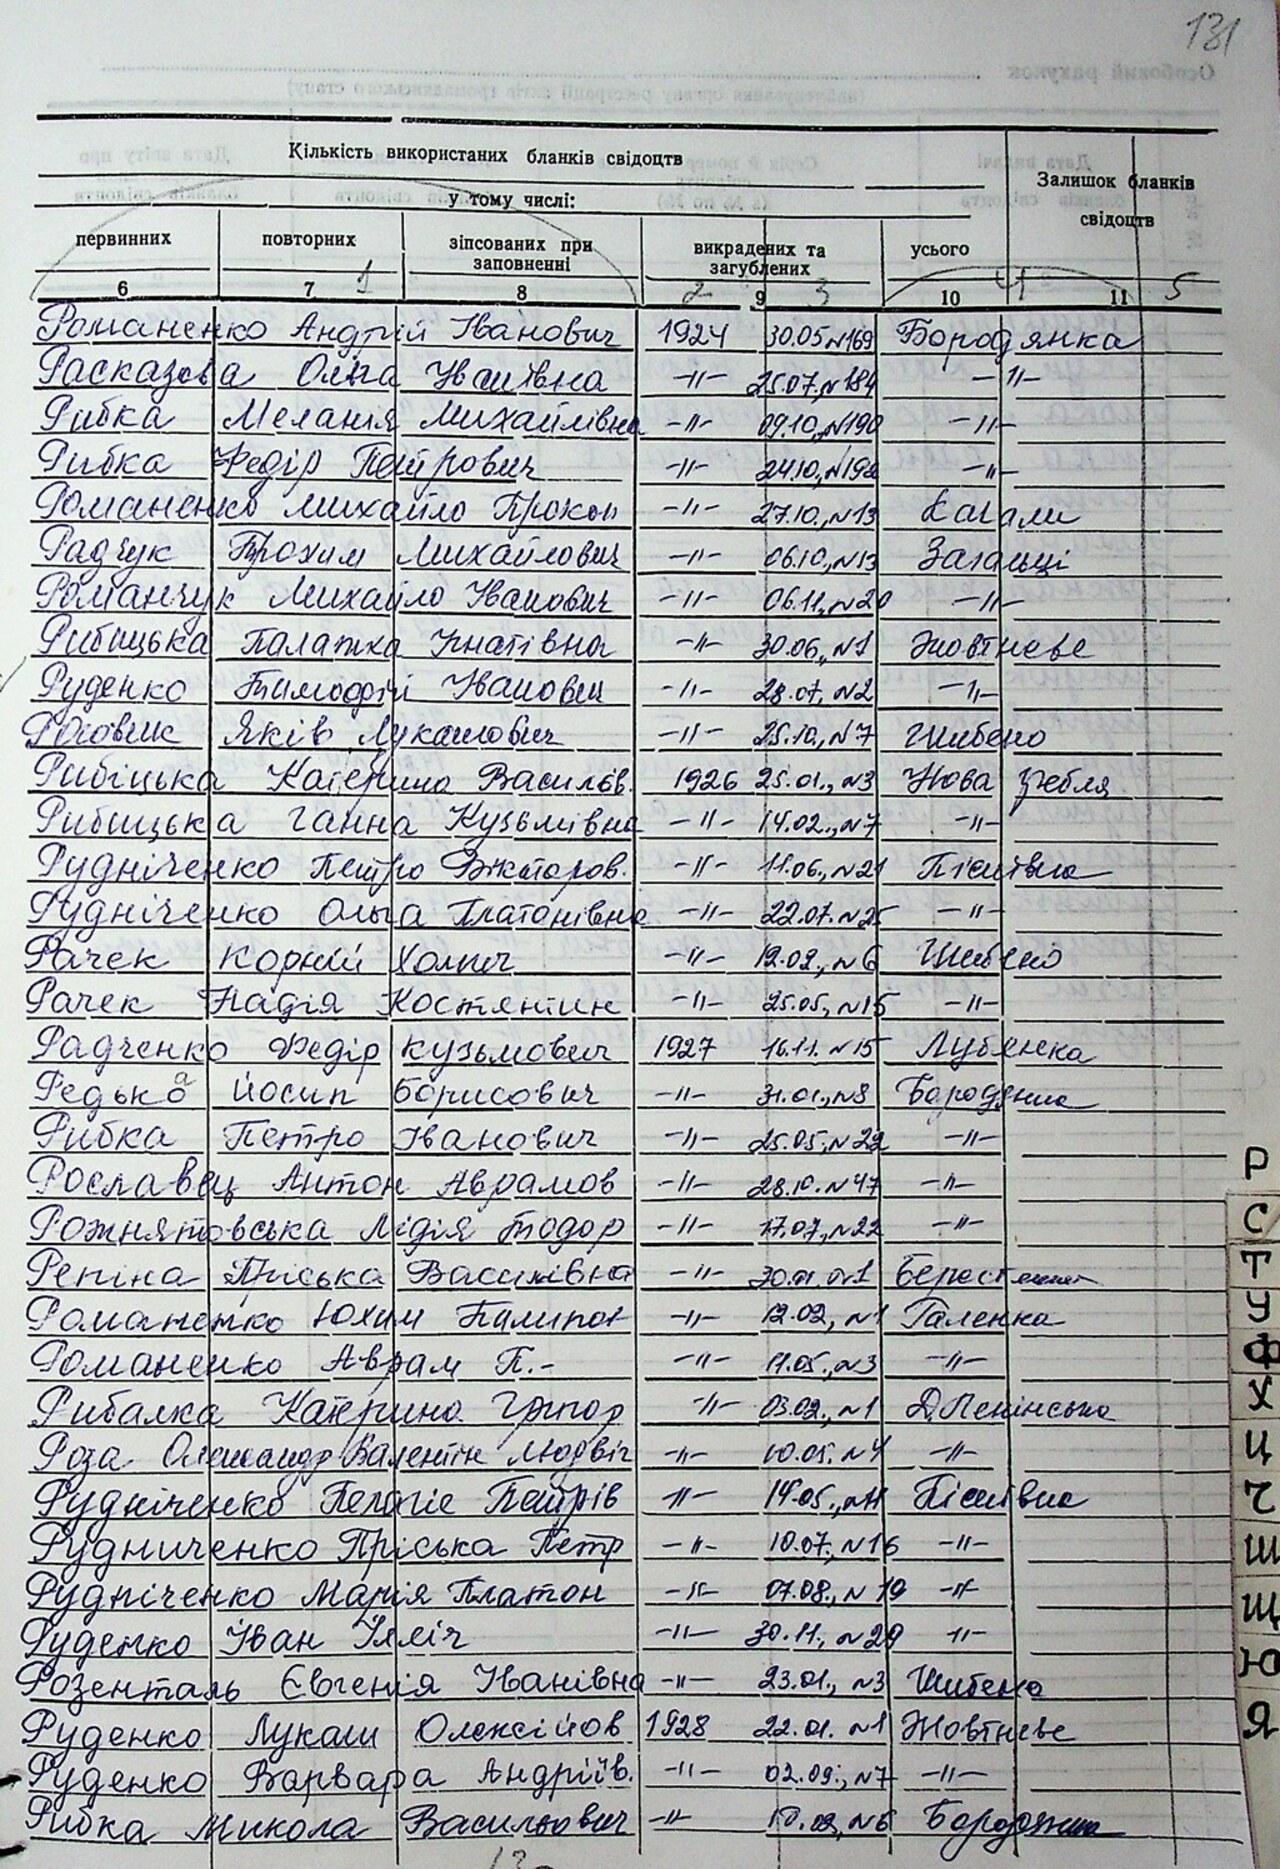 131
Кількість використаних бланків свідоцтв
Залишок бланків свідоцтв
у тому числі:
первинних повторних зіпсованих при заповненні викрадених та загублених усього
6 7 1 8 2 9 3 10 4 11 5
Романенко Андрій Іванович 1924 30.05.,№169 Бородянка
Расказова Ольга Іванівна -"- 25.07.,№184 -"-
Рибка Меланія Михайлівна -"- 09.10.,№190 -"-
Рибка Федір Петрович -"- 24.10.,№192 -"-
Романенко Михайло Прокоп -"- 27.10.,№13 Качали
Радчук Трохим Михайлович -"- 06.10.,№13 Загальці
Романчук Михайло Іванович -"- 06.11.,№20 -"-
Рибицька Палажка Гнатівна -"- 30.06.,№1 Жовтневе
Руденко Тимофій Іванович -"- 28.07.,№2 -"-
Роговик Яків Лукашович -"- 25.10.,№7 Шибено
Рибіцька Катерина Василів. 1926 25.01.,№3 Нова Гребля
Рибицька Ганна Кузьмівна -"- 14.02.,№7 -"-
Рудніченко Петро Вікторов. -"- 11.06.,№21 Пісківка
Рудніченко Ольга Платонівна -"- 22.07.№25 -"-
Рачек Корній -"- 12.02.,№6 Шибено
Рачек Надія Костянтин -"- 25.05.,№15 -"-
Радченко Федір Кузьмович 1927 16.11.№15 Лубянка
Редько Йосип Борисович -"- 31.01.,№8 Бородянка
Рибка Петро Іванович -"- 25.05.,№22 -"-
Рославец Антон Аврамов -"- 28.10.№47 -"-
Рожнятовська Лідія Тодор -"- 17.07.,№22 -"-
Репіна Пріська Василівна -"- 30.01.№1
Романенко Юхим -"- 12.02.,№1 Галенка
Романенко Аврам П.- -"- 11.05.,№3 -"-
Рибалка Катерина Григор -"- 03.02.,№1 Д.Ленінська
Роза Олександр Валентін Людвіг -"- 10.05.№4 -"-
Рудніченко Пелагіє Петрів -"- 14.05.,№11 Пісківка
Рудниченко Пріська Петр -"- 10.07.,№16 -"-
Рудніченко Марія Платон -"- 07.08.,№19 -"-
Руденко Іван Ілліч -"- 30.11.,№29 -"-
Розенталь Євгенія Іванівна -"- 23.01.,№3 Шибена
Руденко Лукаш Олексійов 1928 22.01.№1 Жовтневе
Руденко Варвара Андріїв. -"- 02.09.,№7 -"-
Рибка Микола Васильович -"- 10.09.,№6 Бородянка
Р
С
Т
У
Ф
Х
Ц
Ч
Ш
Щ
Ю
Я